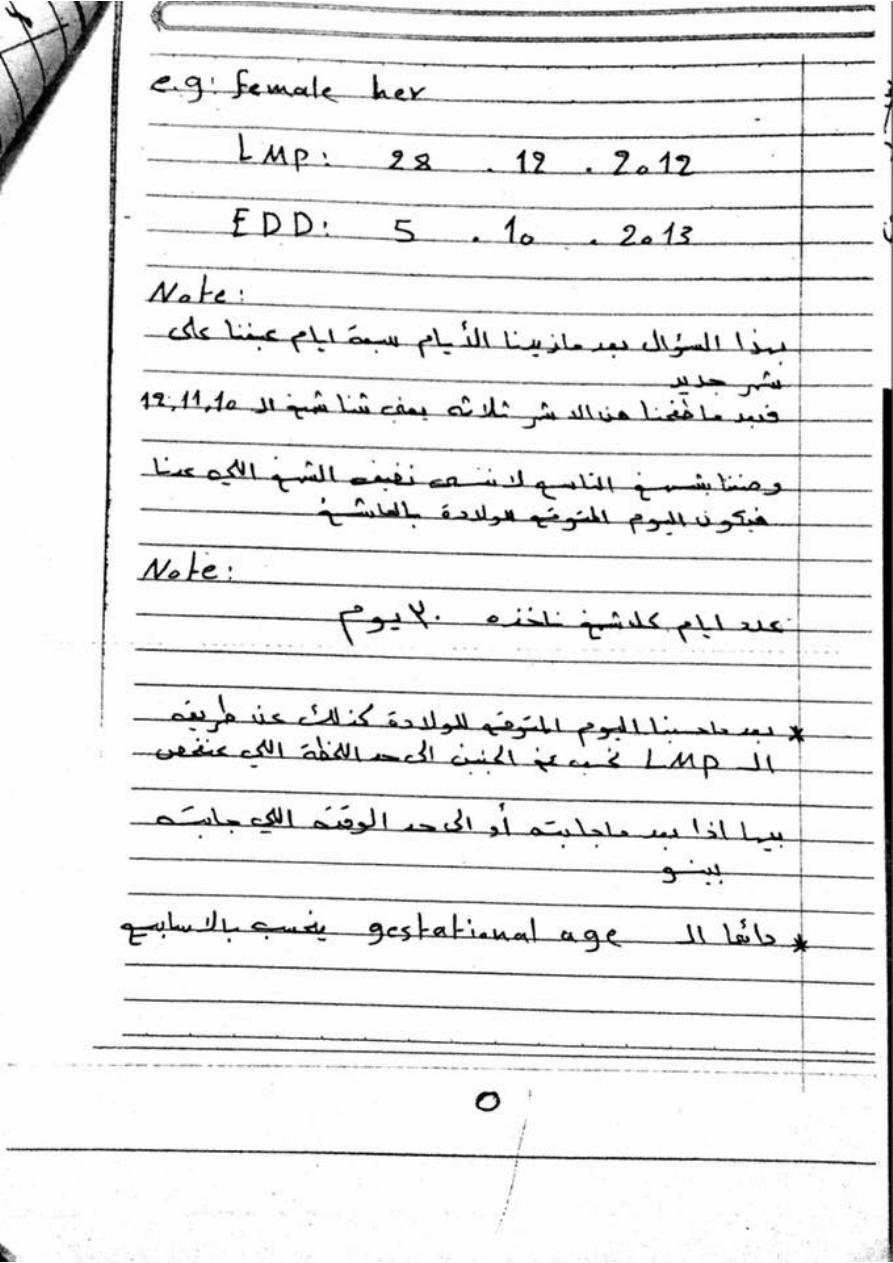 e.g: female her
LMP: 28 . 12 . 2012
EDD: 5 . 10 . 2013
Note:
بهذا السؤال بعد مازيدنا الأيام سبعة ايام عبفنا على
شهر جديد
فبعد ما طحنا من الاشهر ثلاثة 12,11,10
التاسع لا ننسى نضيف الشهر اللي عدنا
فيكون اليوم المتوقع للولادة بالعاشر
Note:
عدد ايام كل شهر ناخذه ٣٠ يوم
* بعد ماحسبنا اليوم المتوقع للولادة كذلك عن طريق
الـ LMP نحسب عمر الجنين الى حد اللحظة اللي
بيها اذا بعد ماجابته أو الى حد الوقت اللي جابته
بينو
* دائما الـ gestational age ينحسب بالاسابيع
٥